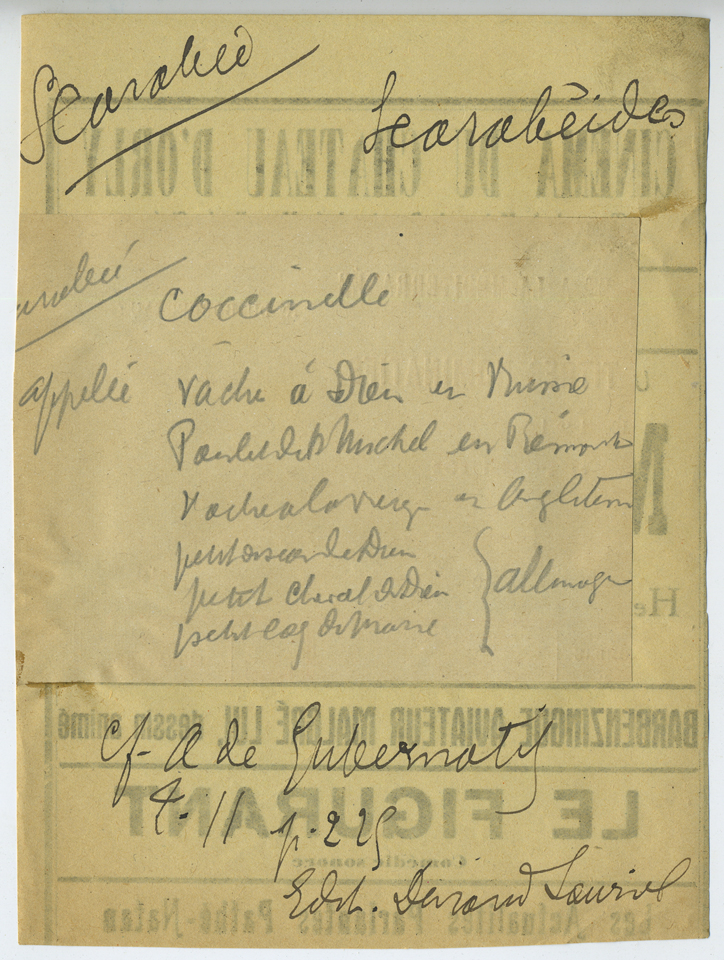 Scarabée
Scarabéides
CINEMA DU CHATEAU D'ORLY
arabée
coccinelle
appelée vache à Dieu en Russie
Poulet de St Michel en Piémont
Vache à la vierge en Angleterre
petit oiseau de Dieu
petit cheval de Dieu } allemagne
petit coq de marie
BARBENZINGUE AVIATEUR MALGRÉ LUI, dessin animé
cf. A de Gubernatis
LE FIGURANT
t. II p. 225
Comédie sonore
Edit. Durand Lauriel
Les Actualités Parlantes Pathé-Natan